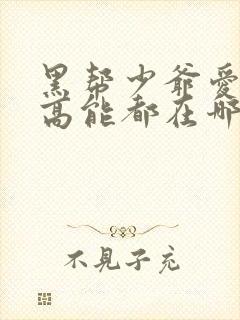 黑帮少爷爱
高能都在哪
不见子充